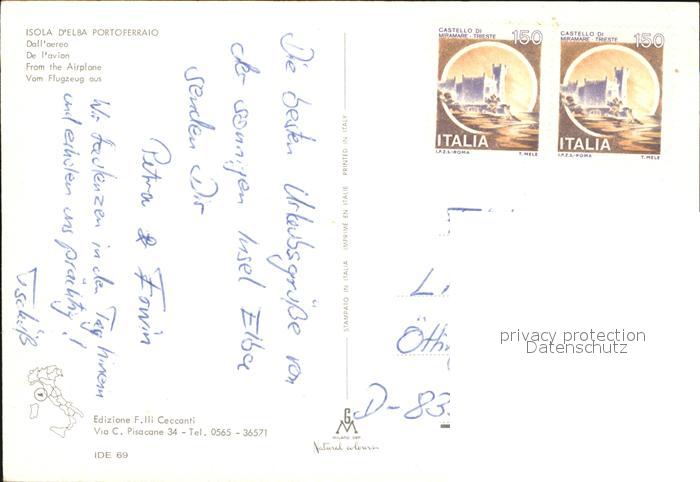 ISOLA D'ELBA PORTOFERRAIO
Dall'aereo
De l'avion
From the Airplane
Vom Flugzeug aus
Die besten Urlaubsgrüße von
der sonnigen Insel Elba
senden Dir
Petra & Erwin
Wir faulenzen in den Tag hinein
und erholen uns prächtig!
Tschüß
Edizione F.lli Ceccanti
Via C. Pisacane 34 - Tel. 0565 - 36571
IDE 69
STAMPATO IN ITALIA IMPRIMÉ EN ITALIE PRINTED IN ITALY
G
M
MILANO DEP.
Natural colours
CASTELLO DI
MIRAMARE - TRIESTE
150
ITALIA
I.P.Z.S.-ROMA T. MELE
CASTELLO DI
MIRAMARE - TRIESTE
150
ITALIA
I.P.Z.S.-ROMA T. MELE
D-83
privacy protection
Datenschutz